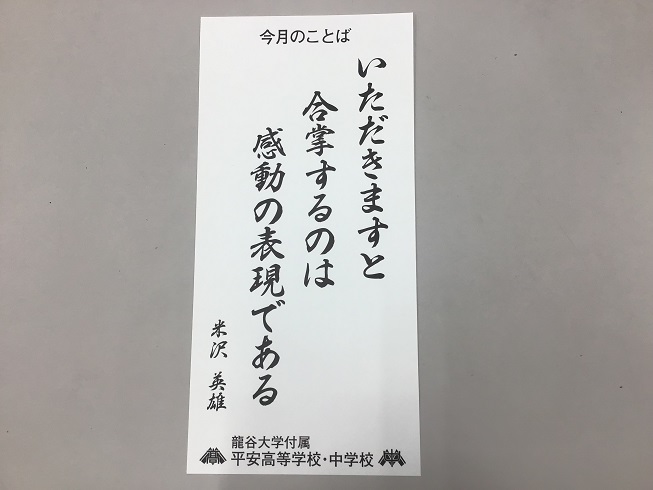 今月のことば
いただきますと
合掌するのは
感動の表現である
米沢 英雄
龍谷大学付属
平安高等学校・中学校